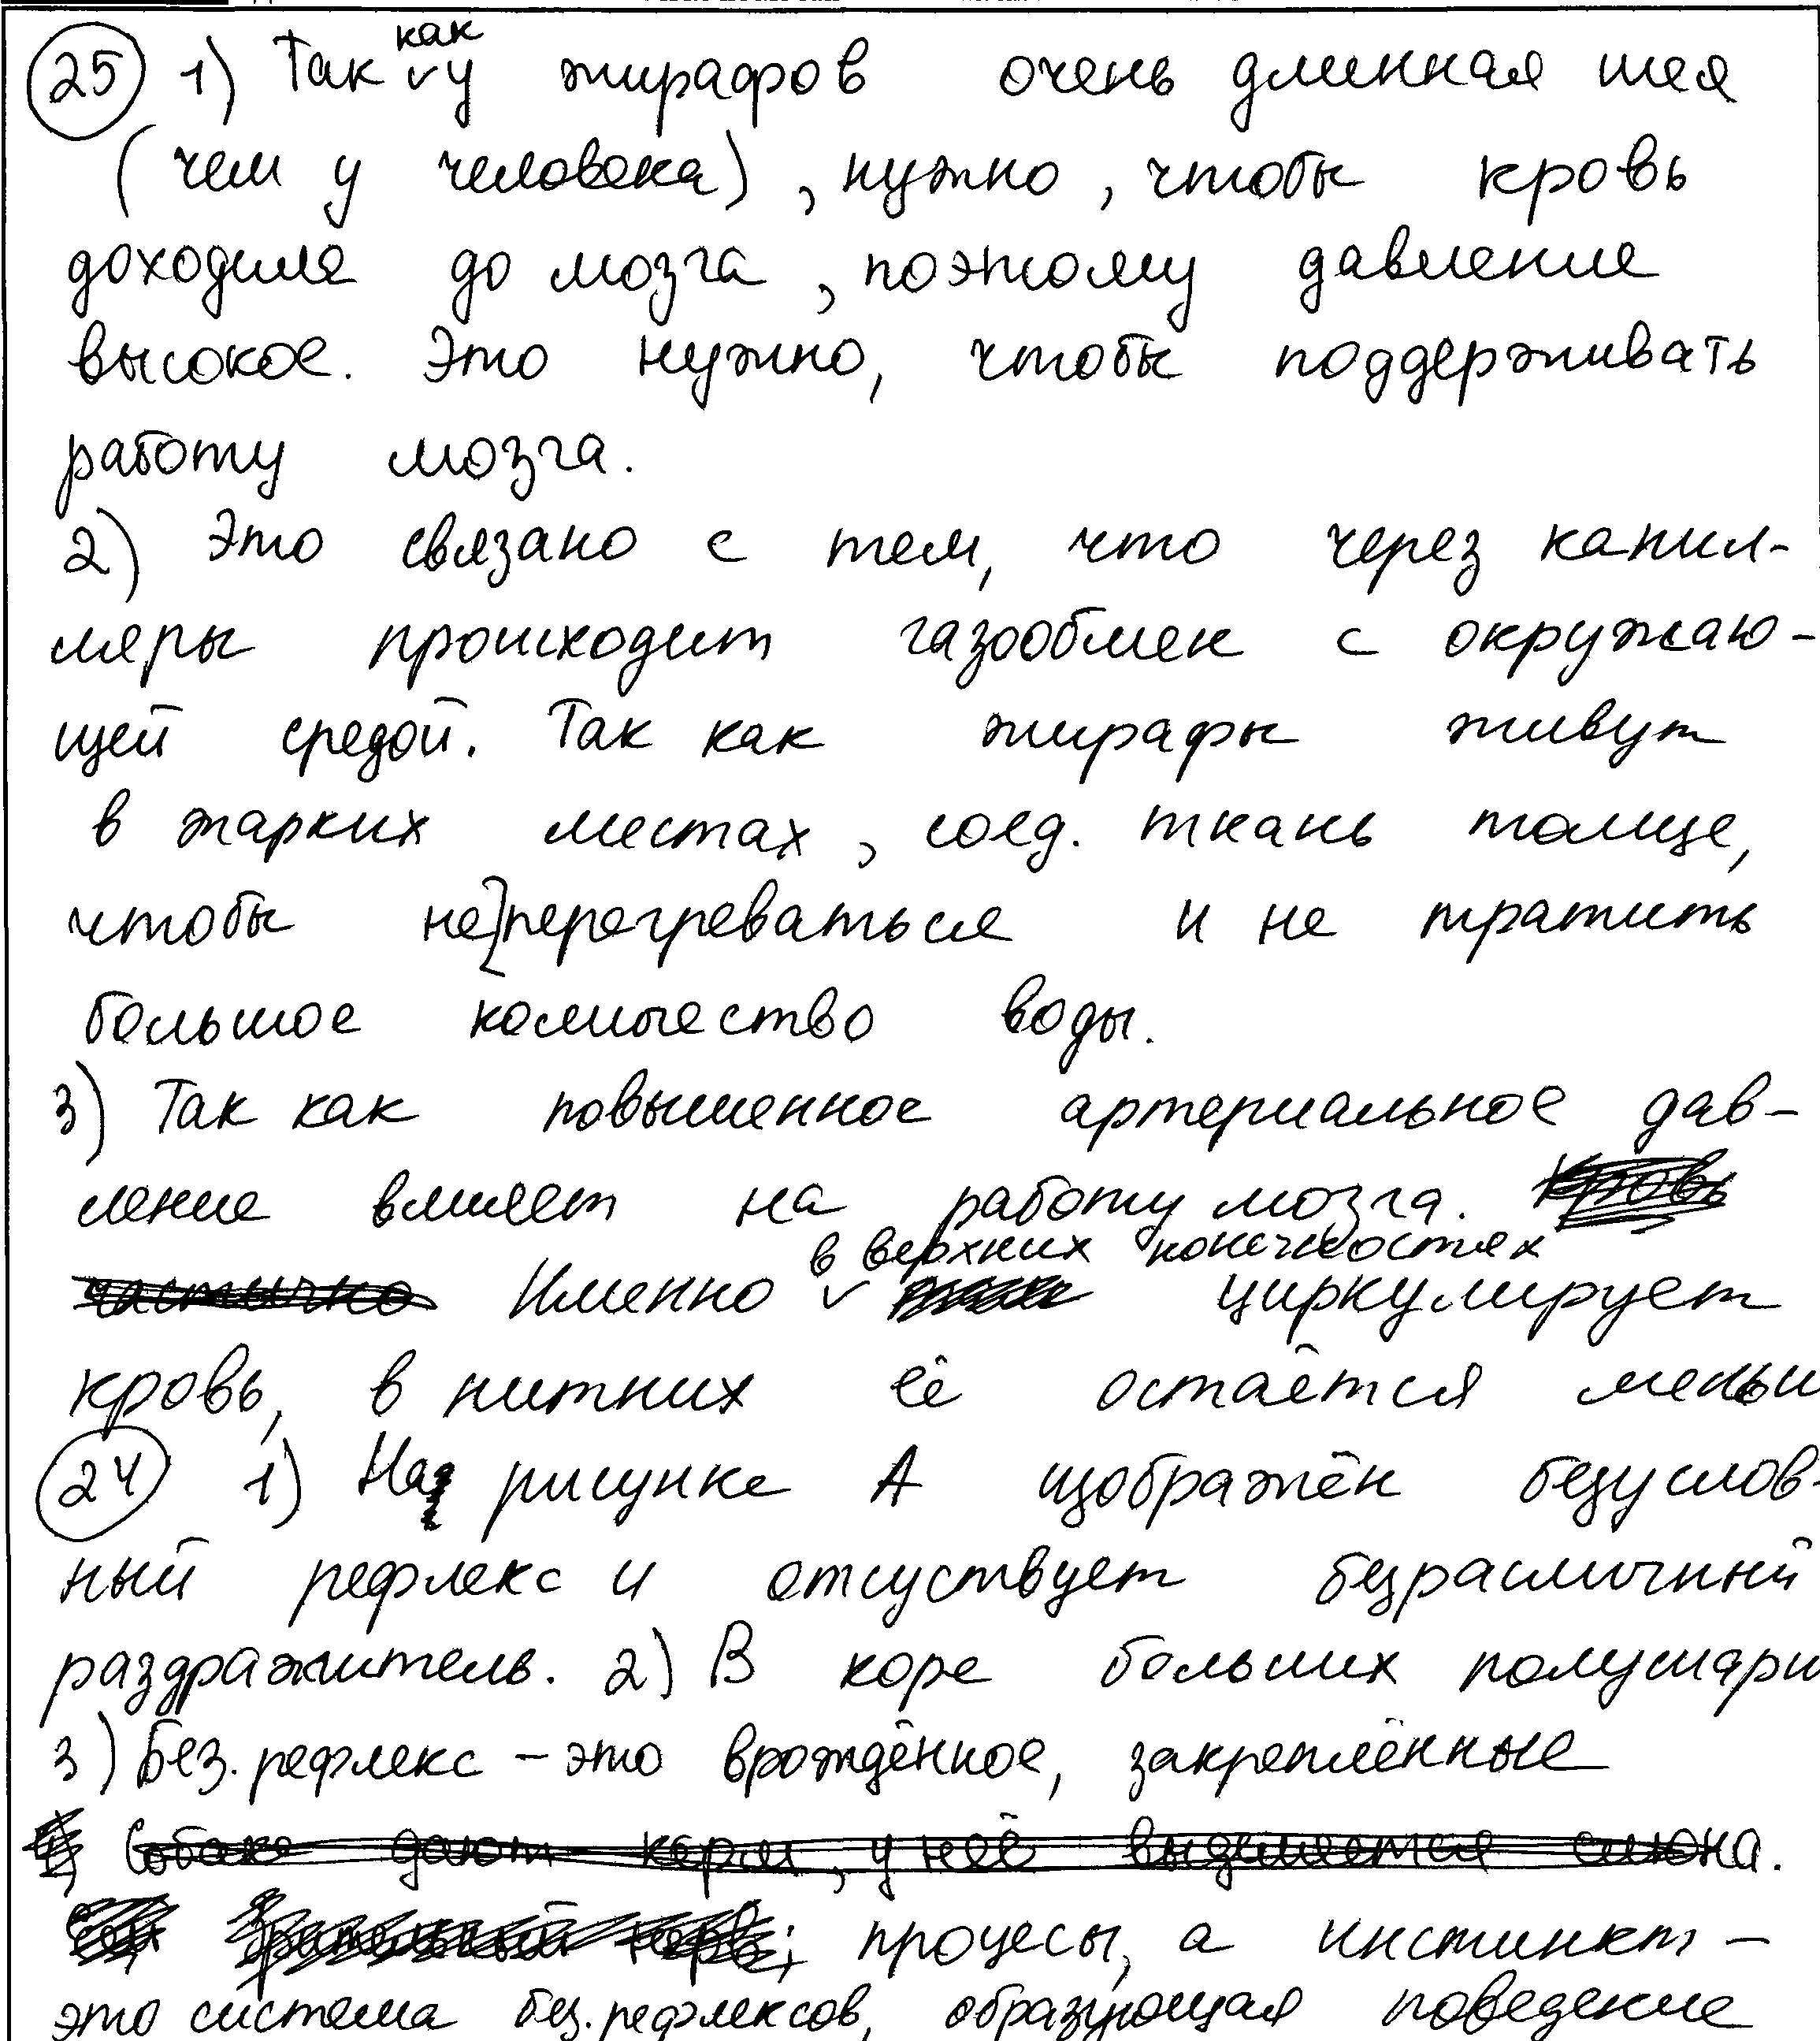 25 1) Так как у жирафов очень длинная шея
(чем у человека), нужно, чтобы кровь
доходила до мозга, поэтому давление
высокое. Это нужно, чтобы поддерживать
работу мозга.
2) Это связано с тем, что через капил-
ляры происходит газообмен с окружаю-
щей средой. Так как жирафы живут
в жарких местах, соед. ткань толще,
чтобы не перегреваться и не тратить
большое количество воды.
3) Так как повышенное артериальное дав-
ление влияет на работу мозга. Кровь
частично Именно в верхних конечностях циркулирует
кровь, в нитних её остаётся меньш
24 1) На рисунке А изображён безуслов-
ный рефлекс и отсуствует безразличный
раздражитель. 2) В коре больших полушари
3) Без. рефлекс – это врождённое, закреплённые
Собаке дают корм, у неё выделяется слюна.
процесы, а инстинкт –
это система без. рефлексов, образующая поведение